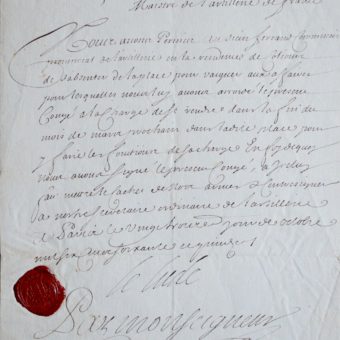 Maistre de l'artillerie de france
Nous avons Permis au sieur ferrand Commissaire
provincial de l'artillerie en la residence de
de s'absenter de la place pour vaquer aux affaires
pour lesquelles nous luy avons accordé le present
Congé a la charge de se rendre dans la fin du
mois de mars prochain dans ladite place pour
y faire les fonctions de sa charge En foy de quoy
Nous avons signé le present congé, a Iceluy
fait mettre le cachet de nos armes et contresigner
a nostre secretaire ordinaire de l'artillerie
a Paris le vingt troisie jour de octobre
mil six cens soixante et quinze
le Lude
Par monseigneur